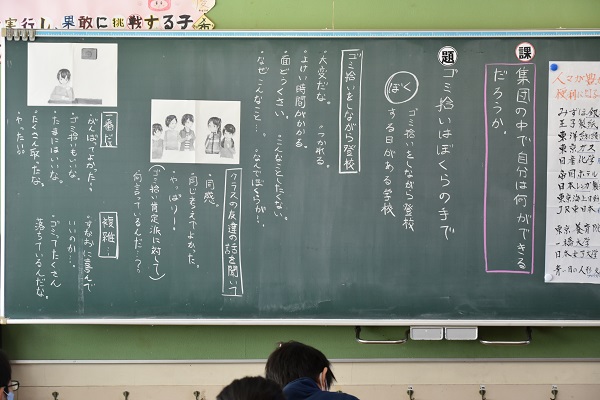 実行し、果敢に挑戦する子
課
集団の中で自分は何ができる
だろうか。
題
ゴミ拾いはぼくらの手で
ぼく
ゴミ拾いをしながら登校
する日がある学校
ゴミ拾いをしながら登校
・大変だな。・つかれる。
・よけい時間がかかる。
・面どうくさい。・こんなことしたくない。
・なぜこんなこと…。・なんでぼくらが…。
クラスの友達の話を聞いて
・同感。
・同じ考えでよかった。
・やっぱり!
(ゴミ拾い肯定派に対して)
何言っているんだ…?
一番だ!
・がんばってよかった!
・ゴミ拾いもいいな。
・たまにはいいな。
・たくさん取ったな。
・やったー!!
複雑…
・すなおに喜んで
いいのか…。
・ゴミってたくさん
落ちているんだな。
みずほ銀
王子製紙
東洋紡
東京ガス
日産化学
帝国ホテル
東京海上
JR東日本
一橋大学
日本女子大学